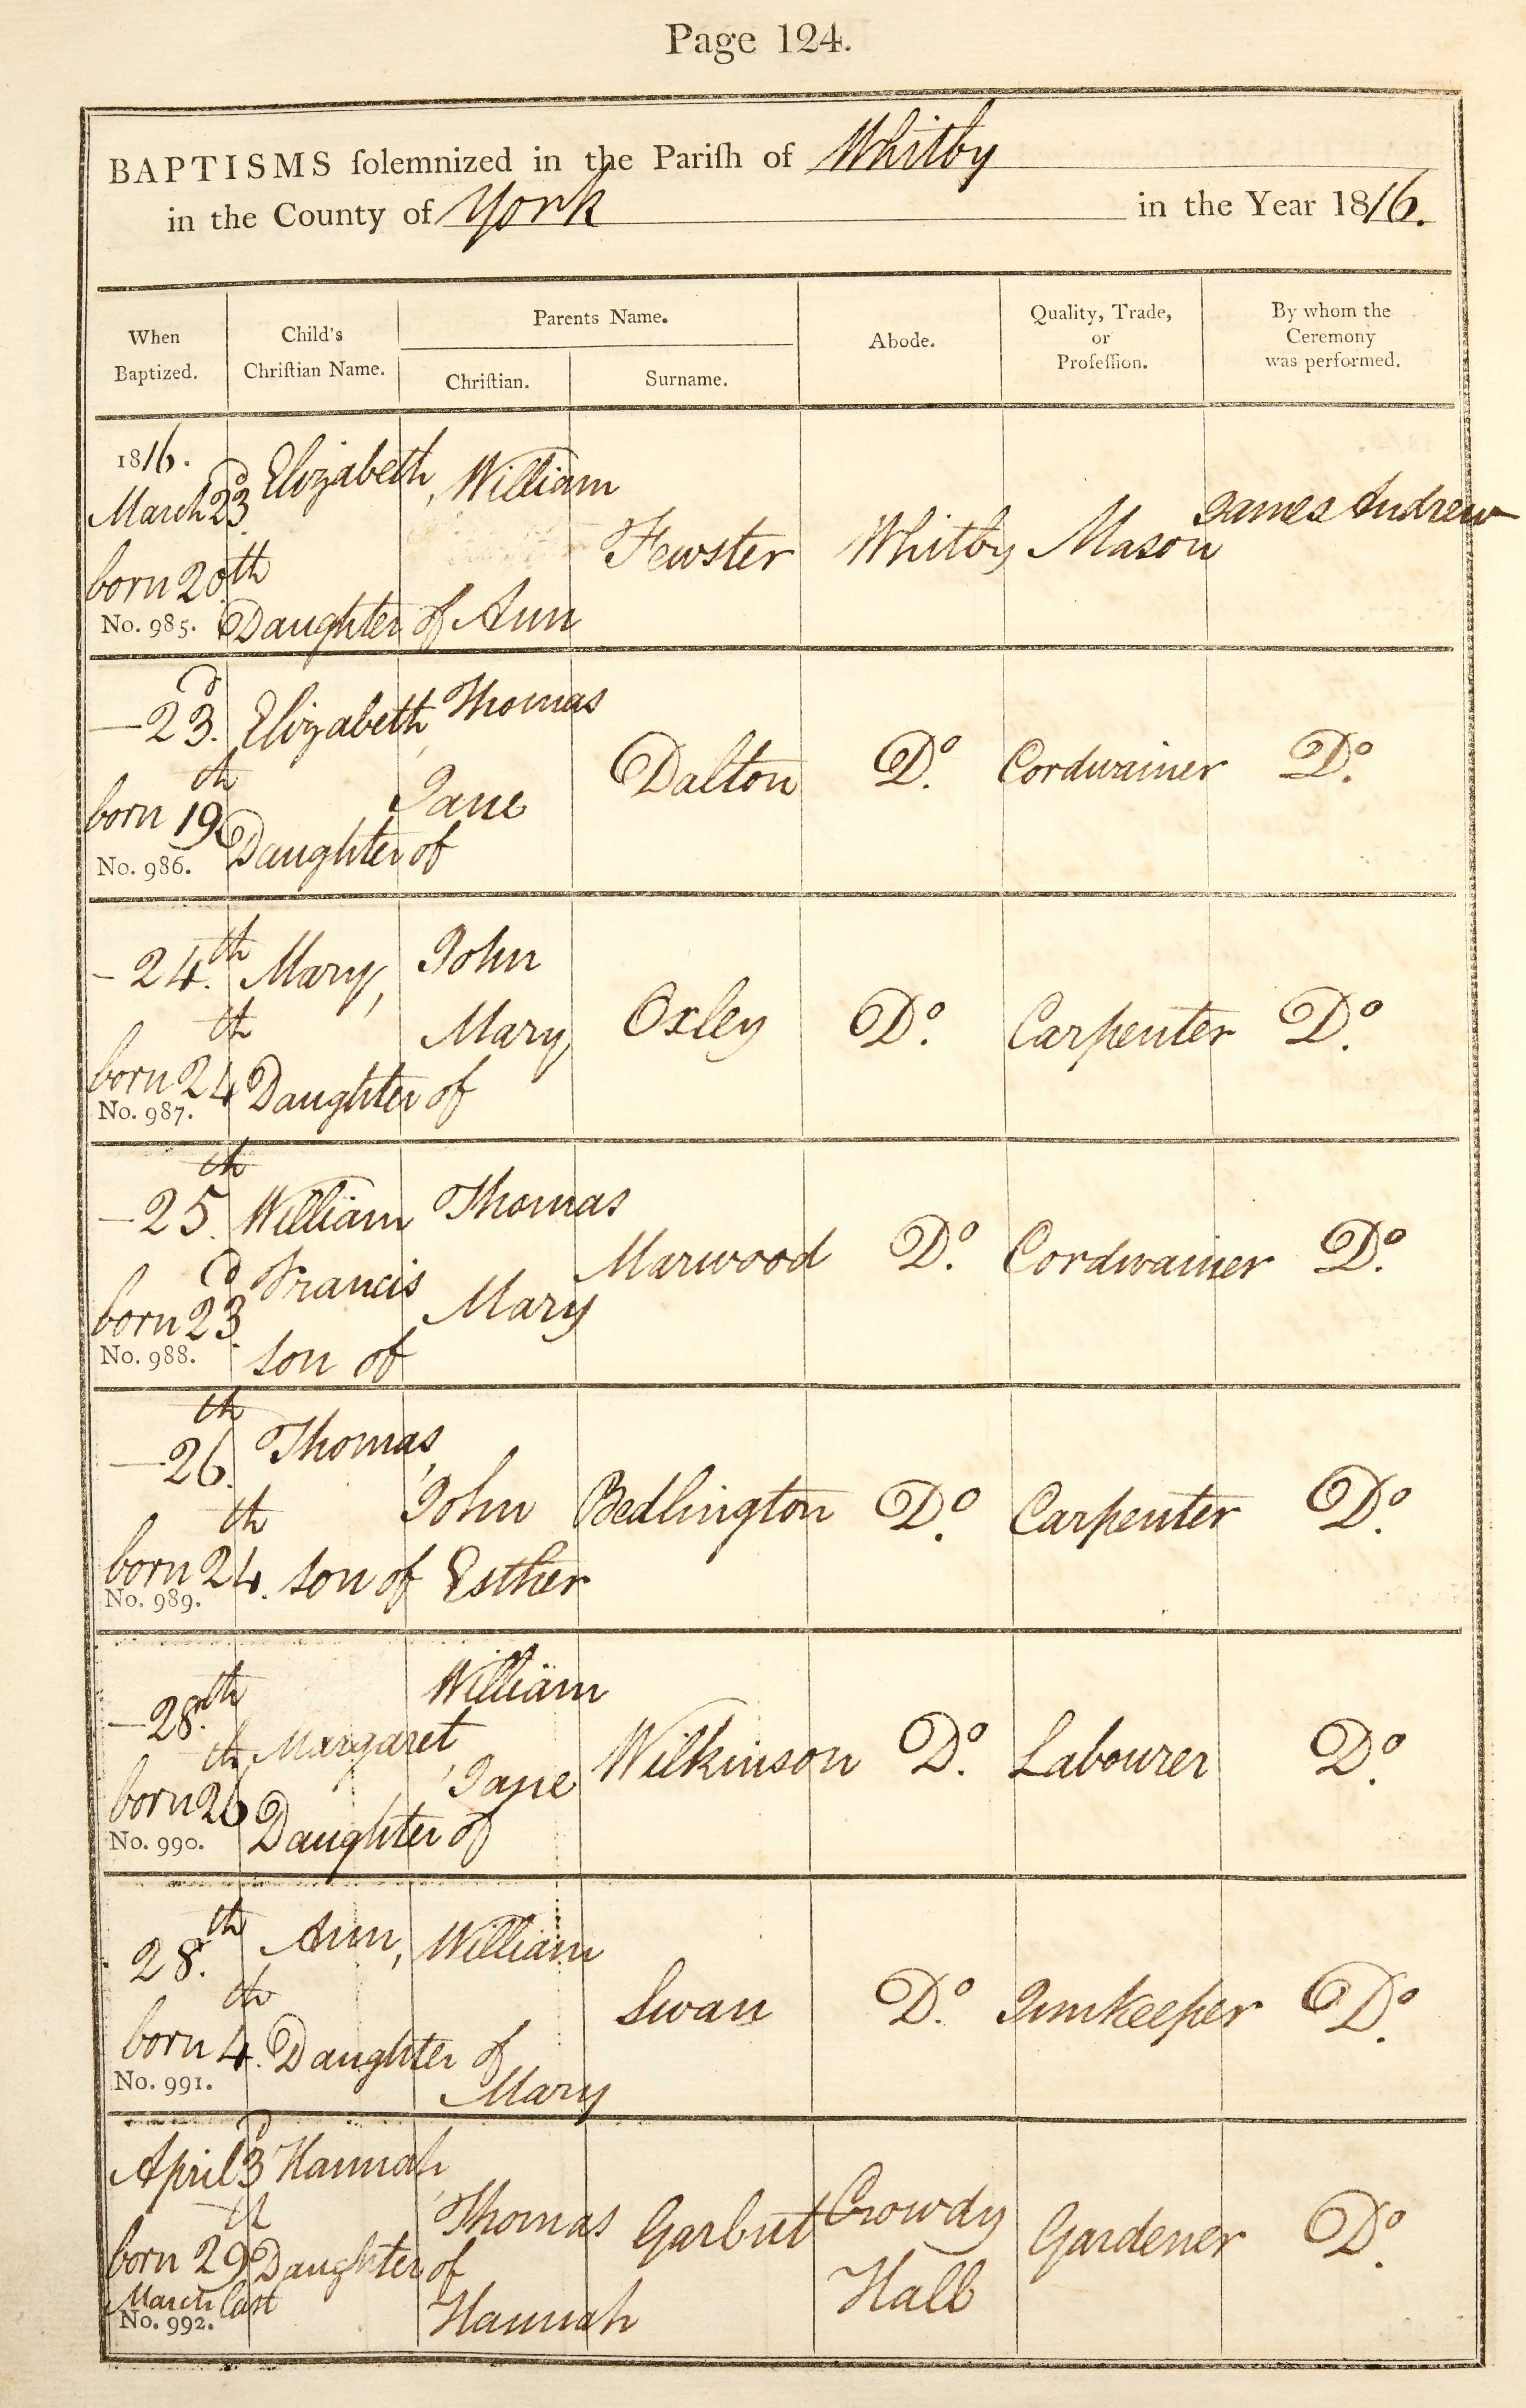 Page 124.
BAPTISMS ſolemnized in the Pariſh of Whitby
in the County of York in the Year 1816.
When Baptized.
Child's Chriſtian Name.
Parents Name.
Chriſtian.
Surname.
Abode.
Quality, Trade, or Profeſſion.
By whom the Ceremony was performed.
1816.
March 23d
born 20th
No. 985.
Elizabeth,
Daughter of
William
Ann
Fewster
Whitby
Mason
James Andrew
—23d.
born 19th
No. 986.
Elizabeth,
Daughter of
Thomas
Jane
Dalton
Do.
Cordwainer
Do.
—24th.
born 24th
No. 987.
Mary,
Daughter of
John
Mary
Oxley
Do.
Carpenter
Do.
—25th.
born 23d.
No. 988.
William
Francis
son of
Thomas
Mary
Marwood
Do.
Cordwainer
Do.
—26th.
born 24th.
No. 989.
Thomas,
son of
John
Esther
Bedlington
Do.
Carpenter
Do.
—28th.
born 26th
No. 990.
Margaret,
Daughter of
William
Jane
Wilkinson
Do.
Labourer
Do.
28th.
born 4th.
No. 991.
Ann,
Daughter of
William
Mary
Swan
Do.
Innkeeper
Do.
April 3d
born 29th
March last
No. 992.
Hannah,
Daughter of
Thomas
Hannah
Garbut
Crowdy
Hall
Gardener
Do.